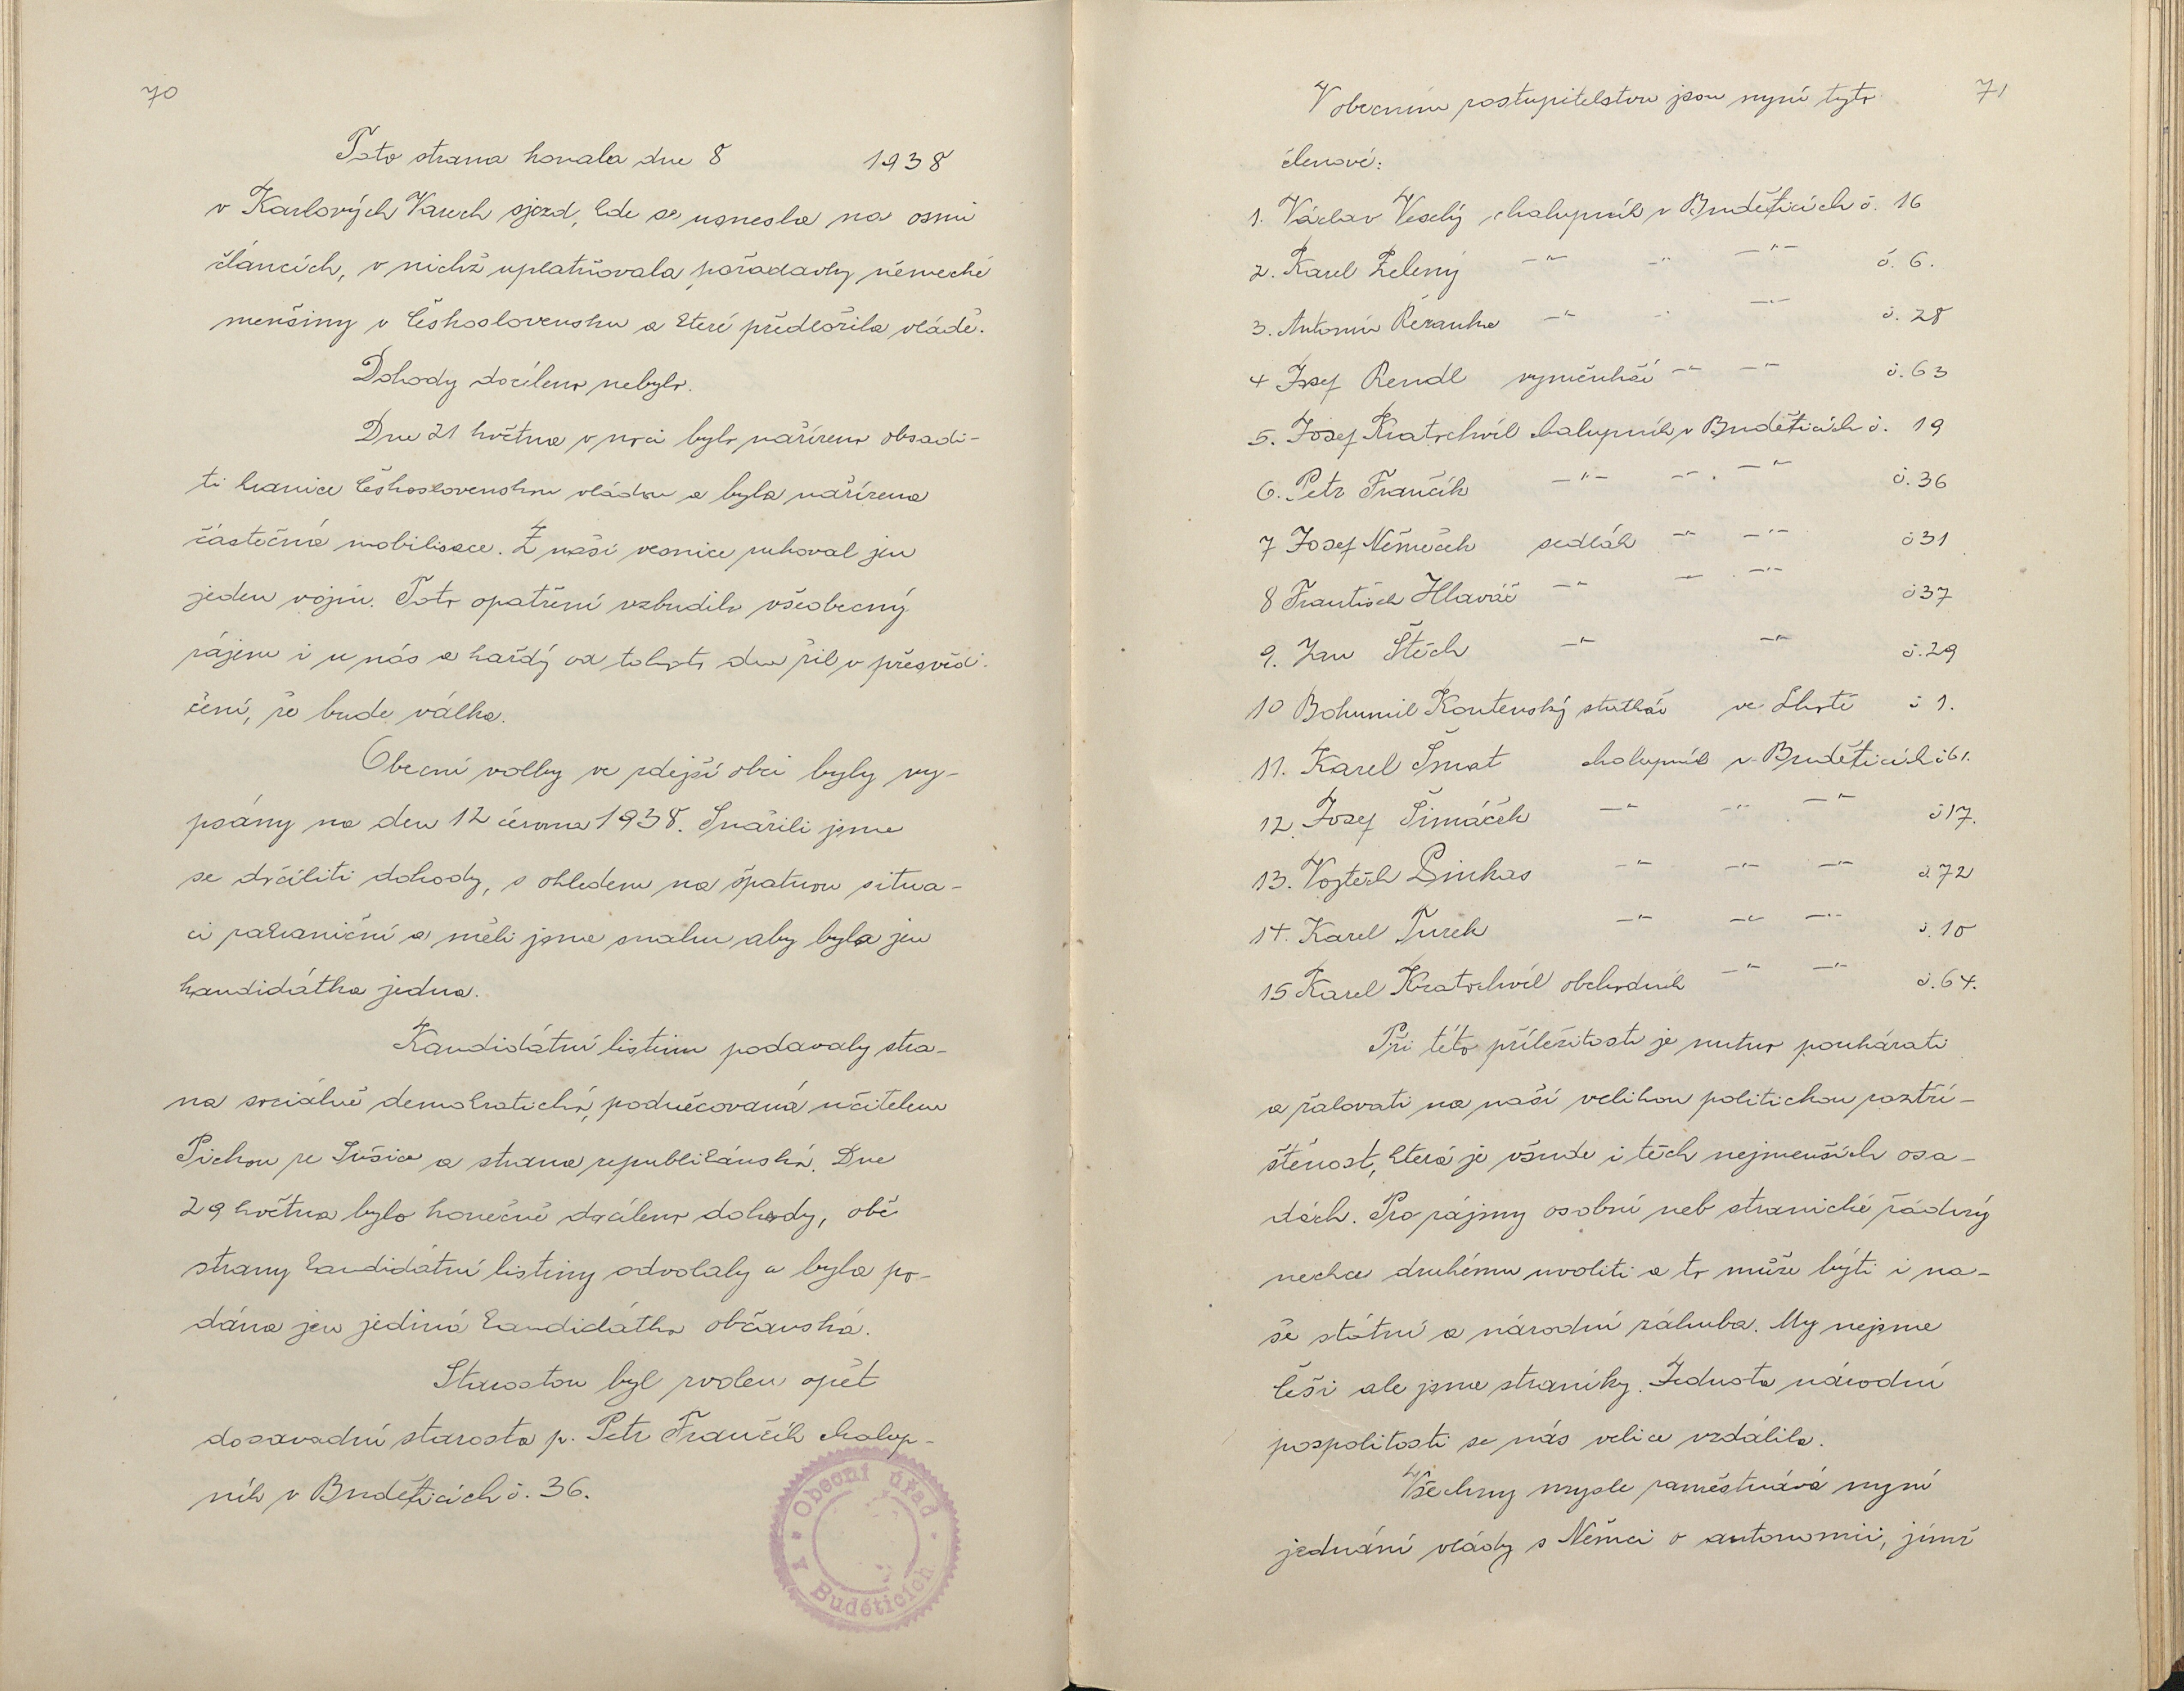 70
Tato strana konala dne 8 1938
v Karlových Varech sjezd, kde se usnesla na osmi
článcích, v nichž uplatňovala požadavky německé
menšiny v Československu a které předložila vládě.
Dohody docíleno nebylo.
Dne 21 května v noci bylo nařízeno obsadi-
ti hranice Československou vládou a byla nařízena
částečná mobilisace. Z naší vesnice rukoval jen
jeden vojín. Toto opatření vzbudilo všeobecný
zájem i u nás a každý od tohoto dne žil v přesvěd-
čení, že bude válka.
Obecní volby ve zdejší obci byly vy-
psány na den 12 června 1938. Snažili jsme
se dočíliti dohody, s ohledem na špatnou situa-
ci zahraniční a měli jsme snahu aby byla jen
kandidátka jedna.
Kandidátní listinu podavaly stra-
na sociálně demokratická, podněcovaná učitelem
Pichou ze Sušice a strana republikánská. Dne
29 května bylo konečně docíleno dohody, obě
strany kandidátní listiny odvolaly a byla po-
dána jen jediná kandidátka občanská.
Starostou byl zvolen opět
dosavadní starosta p. Petr Frančík chalup-
ník v Budětticích č. 36.
Obecní úřad
v Buděticích
71
V obecním zastupitelstvu jsou nyní tyto
členové:
1. Václav Veselý chalupník v Budětticích č. 16
2. Karel Zelený -"- -"- -"- č. 6.
3. Antonín Řežanka -"- -"- -"- č. 28
4 Josef Rendl výměnkář -"- -"- č. 63
5. Josef Kratochvíl chalupník v Budětticích č. 19
6. Petr Frančík -"- -"- -"- č. 36
7 Josef Němeček sedlák -"- -"- č 31
8 František Hlaváč -"- -"- -"- č 37
9. Jan Štěch -"- -"- č. 29
10 Bohumil Koutenský statkář ve Lhotě č 1.
11. Karel Šmat chalupník v Budětticích č 61.
12. Josef Šimáček -"- -"- -"- č 17.
13. Vojtěch Pinkas -"- -"- -"- č. 72
14. Karel Turek -"- -"- -"- č. 10
15 Karel Kratochvíl obchodník -"- -"- č. 64.
Při této příležitosti je nutno poukázati
a žalovati na naší velikou politickou roztří-
štěnost, která je všude i těch nejmenších osa-
dách. Pro zájmy osobní neb stranické žádný
nechce druhému uvoliti a to může býti i na-
še státní a národní záhuba. My nejsme
češi ale jsme straníky. Jednota národní
pospolitosti se nás velice vzdálila.
Všechny mysle zaměstnává nyní
jednání vlády s Němci o autonomii, jimž